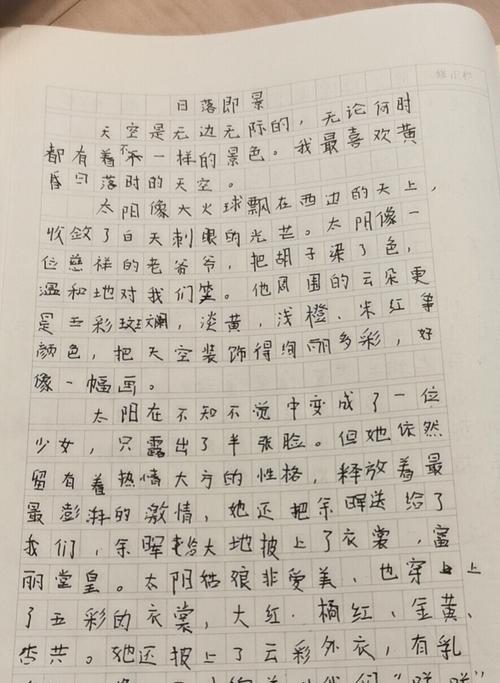 修正栏
日落即景
天空是无边无际的，无论何时
都有着不一样的景色。我最喜欢黄
昏日落时的天空。
太阳像大火球飘在西边的天上，
收敛了白天刺眼的光芒。太阳像一
位慈祥的老爷爷，把胡子染了色，
温和地对我们笑。他周围的云朵更
是五彩斑斓，淡黄，浅橙、朱红等
颜色，把天空装饰得绚丽多彩，好
像一幅画。
太阳在不知不觉中变成了一位
少女，只露出了半张脸。但她依然
留有着热情大方的性格，释放着最
最澎湃的激情，她还把余晖送给了
我们，余晖给大地披上了衣裳，富
丽堂皇。太阳姑娘非爱美，也穿上
了五彩的衣裳，大红、橘红、金黄、
杏黄。她还披上了云彩外衣，有乳